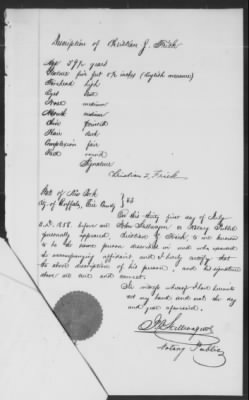 Description of Christian J. Frick
Age 37 years
Stature five feet inches (English measure)
Forehead high
Eyes
Nose medium
Mouth medium
Chin pointed
Hair dark
Complexion fair
Face round
Signature
Christian Z. Frick
State of New York
City of Buffalo, Erie County } SS
On this thirty first day of July
A.D. 1858. before me John a Notary Public
personally appeared, Christian Frick, to me known
to be the same person described in and who executed
the accompanying affidavit and I hereby certify that
the above description of his person, and his signature
above are and correct.
In witness whereof I have hereunto
set my hand and the day
and year aforesaid.
Notary Public